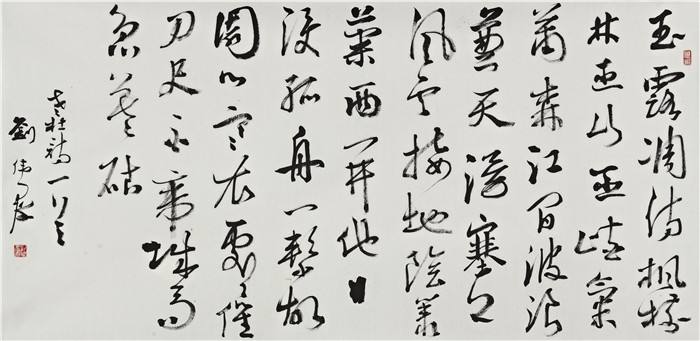 玉露凋傷楓樹
林巫山巫峽氣
蕭森江間波浪
兼天湧塞上
風雲接地陰叢
菊兩開他日
淚孤舟一繫故
園心寒衣處處催
刀尺白帝城高
急暮砧
老杜詩一首
劉偉